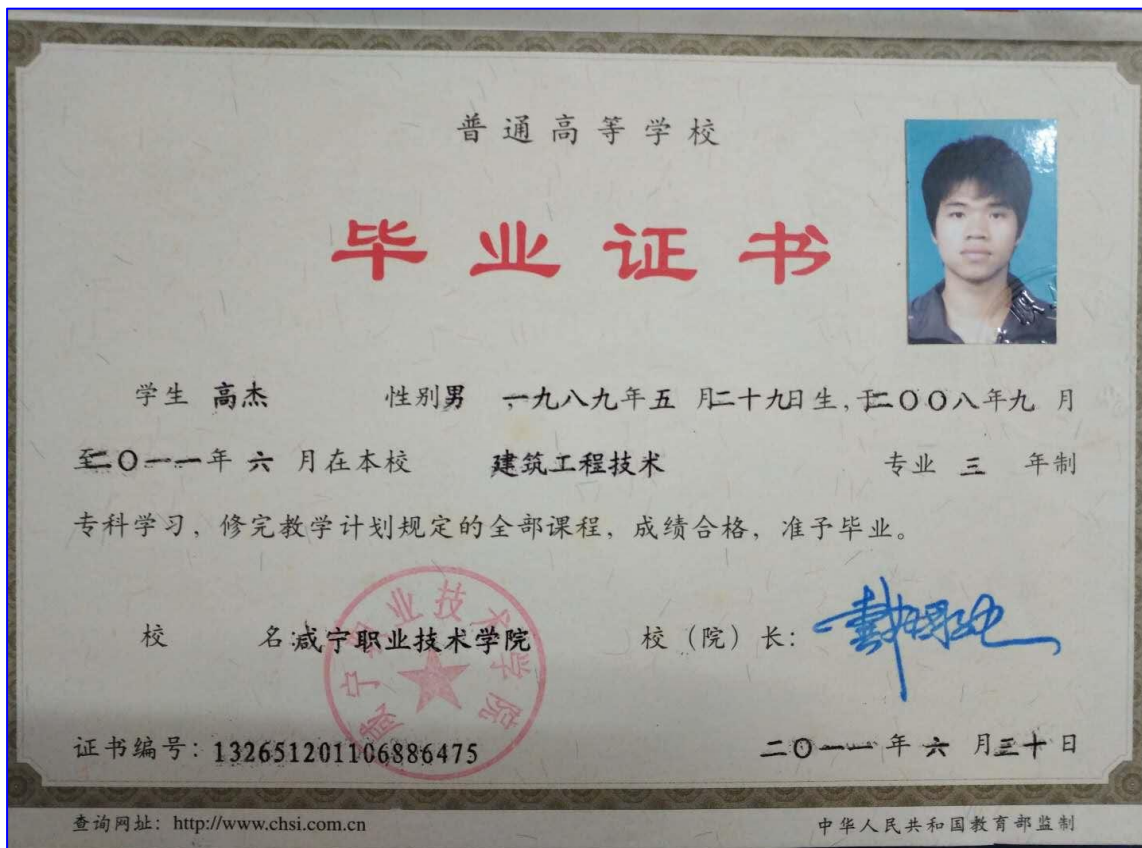 普通高等学校
毕业证书
学生 高杰 性别男 一九八九年五月二十九日生，于二〇〇八年九月
至二〇一一年六月在本校 建筑工程技术 专业 三 年制
专科学习，修完教学计划规定的全部课程，成绩合格，准予毕业。
校 名:咸宁职业技术学院 校（院）长:
咸宁职业技术学院
证书编号: 132651201106886475 二〇一一年六月三十日
查询网址: http://www.chsi.com.cn 中华人民共和国教育部监制